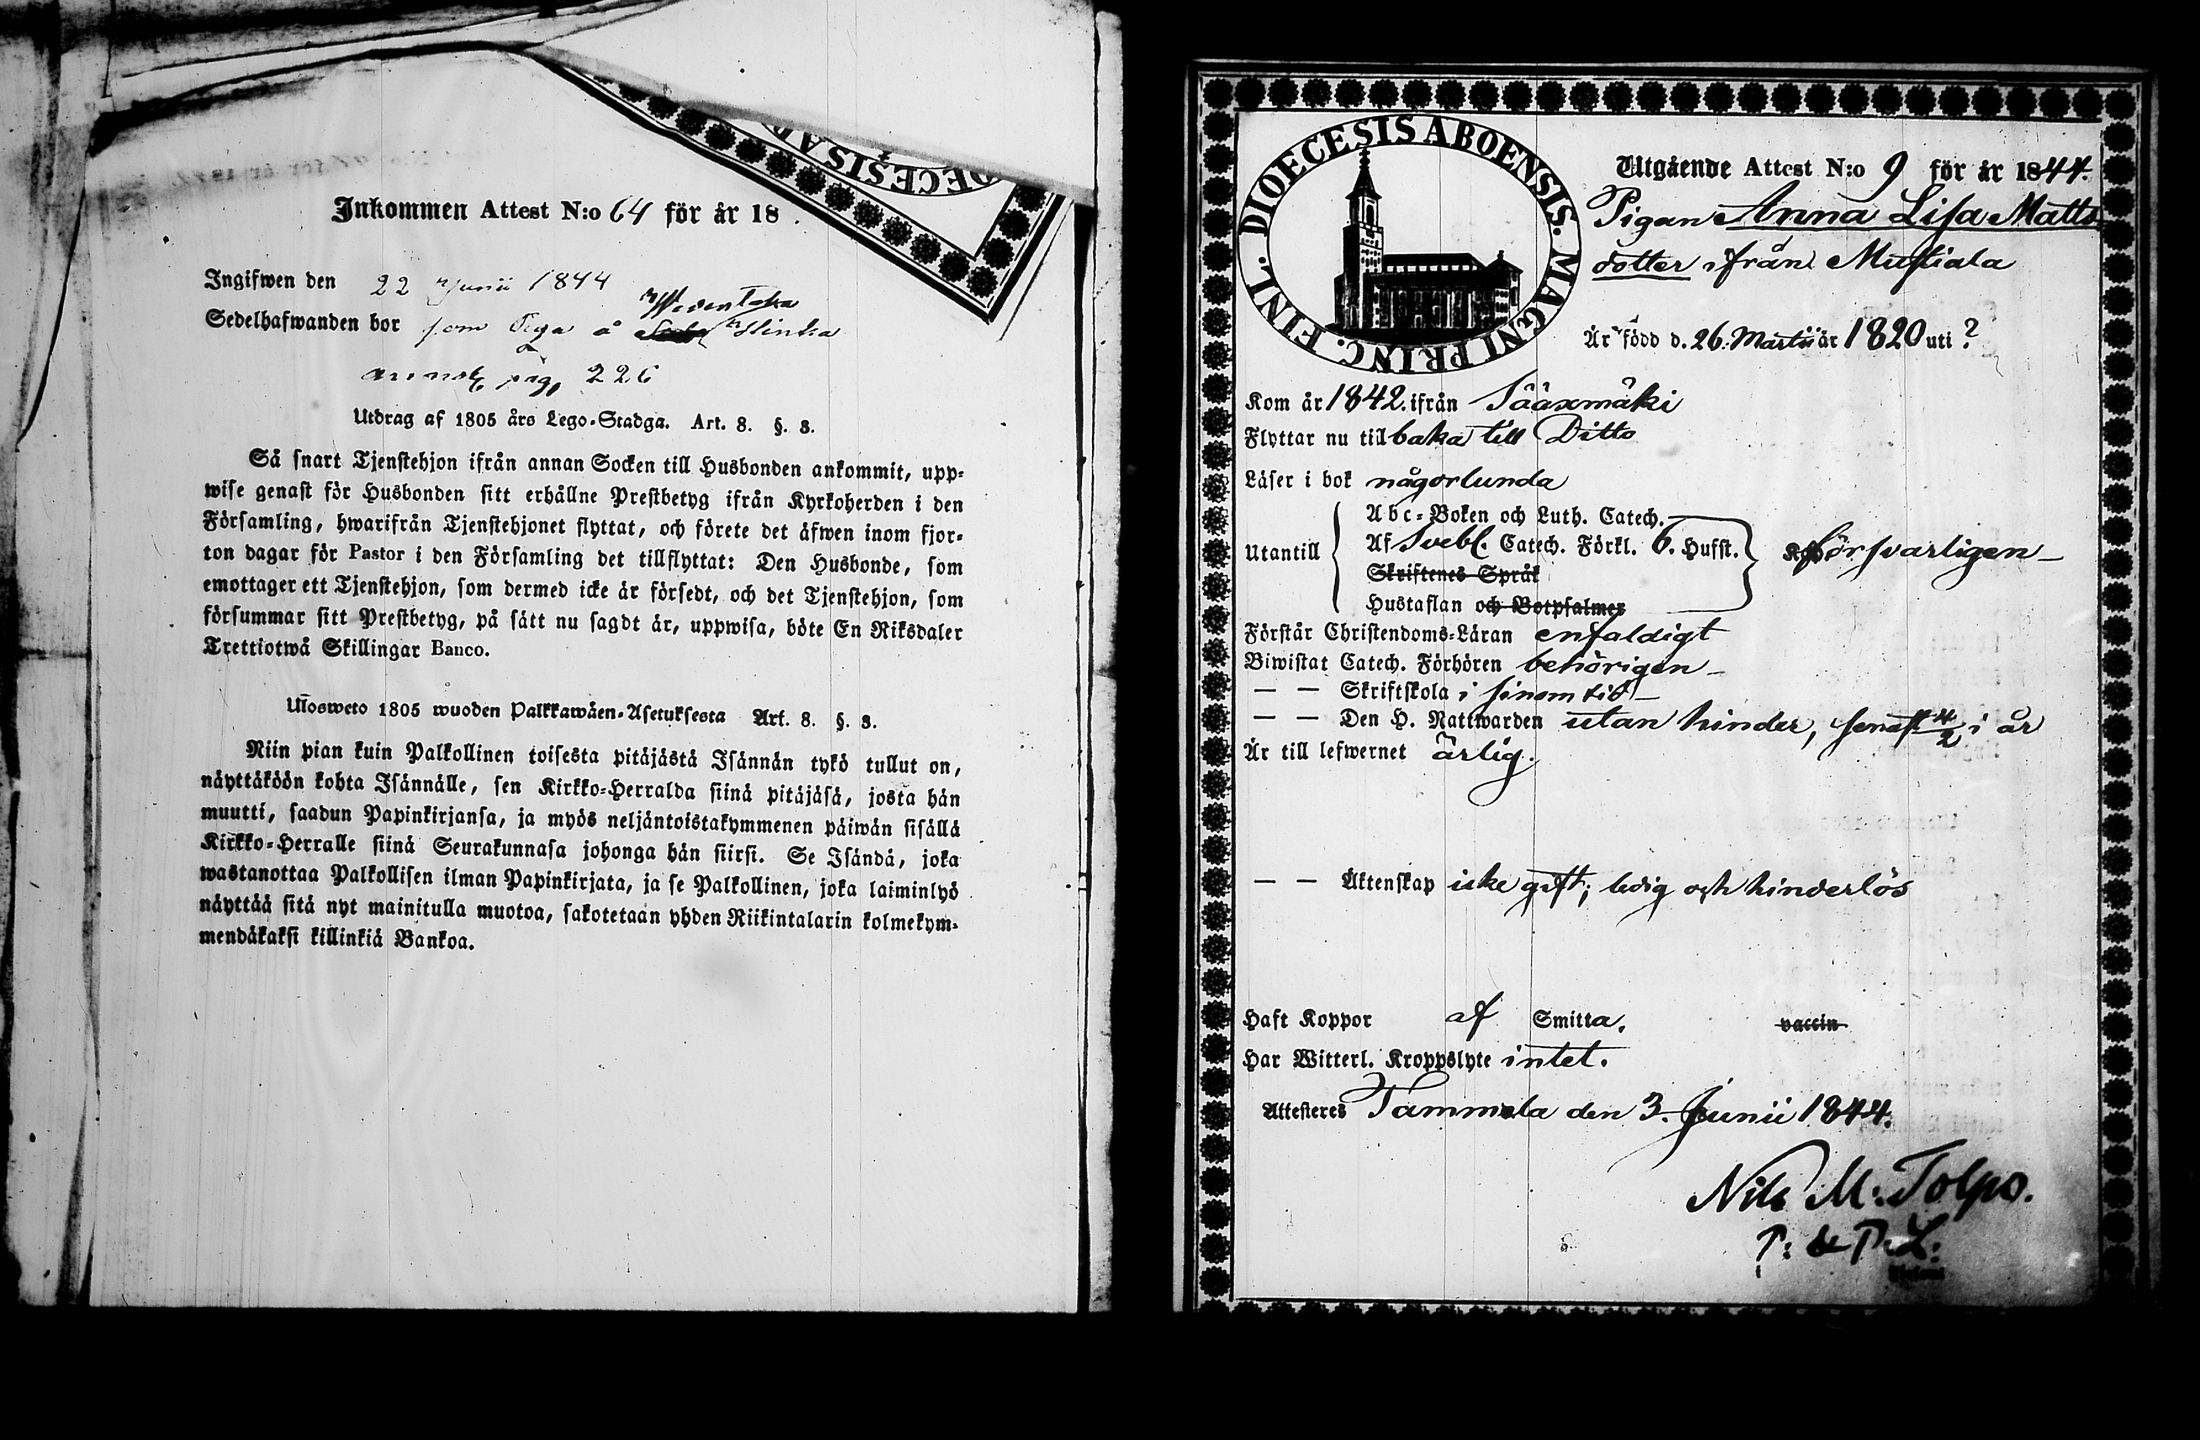 DIOECESIS A
Inkommen Attest N:o 64 för år 18
Ingifwen den 22 Junii 1844
Sedelhafwanden bor som Piga å Hinka
pag. 226
Utdrag af 1805 års Lego-Stadga. Art. 8. §. 3.
Så snart Tjenstehjon ifrån annan Socken till Husbonden ankommit, upp-
wise genast för Husbonden sitt erhållne Prestbetyg ifrån Kyrkoherden i den
Församling, hwarifrån Tjenstehjonet flyttat, och förete det äfwen inom fjor-
ton dagar för Pastor i den Församling det tillflyttat: Den Husbonde, som
emottager ett Tjenstehjon, som dermed icke är försedt, och det Tjenstehjon, som
försummar sitt Prestbetyg, på sätt nu sagdt är, uppwisa, böte En Riksdaler
Trettiotwå Skillingar Banco.
Ulosweto 1805 wuoden Palkkawäen-Asetuksesta Art. 8. §. 3.
Niin pian kuin Palkollinen toisesta pitäjästä Isännän tykö tullut on,
näyttäköön kohta Isännälle, sen Kirkko-Herralda siinä pitäjäsä, josta hän
muutti, saadun Papinkirjansa, ja myös neljäntoistakymmenen päiwän sisällä
Kirkko-Herralle siinä Seurakunnasa johonga hän siirsi. Se Isändä, joka
wastanottaa Palkollisen ilman Papinkirjata, ja se Palkollinen, joka laiminlyö
näyttää sitä nyt mainitulla muotoa, sakotetaan yhden Riikintalarin kolmekym-
mendäkaksi killinkiä Bankoa.
DIOECESIS ABOENSIS. MAGNI PRINC. FINL.
Utgående Attest N:o 9 för år 1844.
Pigan Anna Lisa Matts
dotter ifrån Mustiala
Är född d. 26. Martii år 1820 uti ?
Kom år 1842. ifrån Sääxmäki
Flyttar nu tillbaka till Ditto
Läser i bok någorlunda
Abc-Boken och Luth. Catech.
Utantill Af Svebl. Catech. Förkl. 6. Hufst. försvarligen
Skriftenes Språk
Hustaflan och Botpsalmer
Förstår Christendoms-Läran enfaldigt
Biwistat Catech. Förhören behörigen
— — Skriftskola i sinom tid
— — Den H. Nattwarden utan hinder, senast 4/2 i år
Är till lefwernet ärlig.
— — Äktenskap icke gift; ledig och hinderlös
Haft Koppor af Smitta. vaccin
Har Witterl. Kroppslyte intet.
Attesteres Tammela den 3. Junii 1844.
Nils M. Tolpo.
P: & P. L: